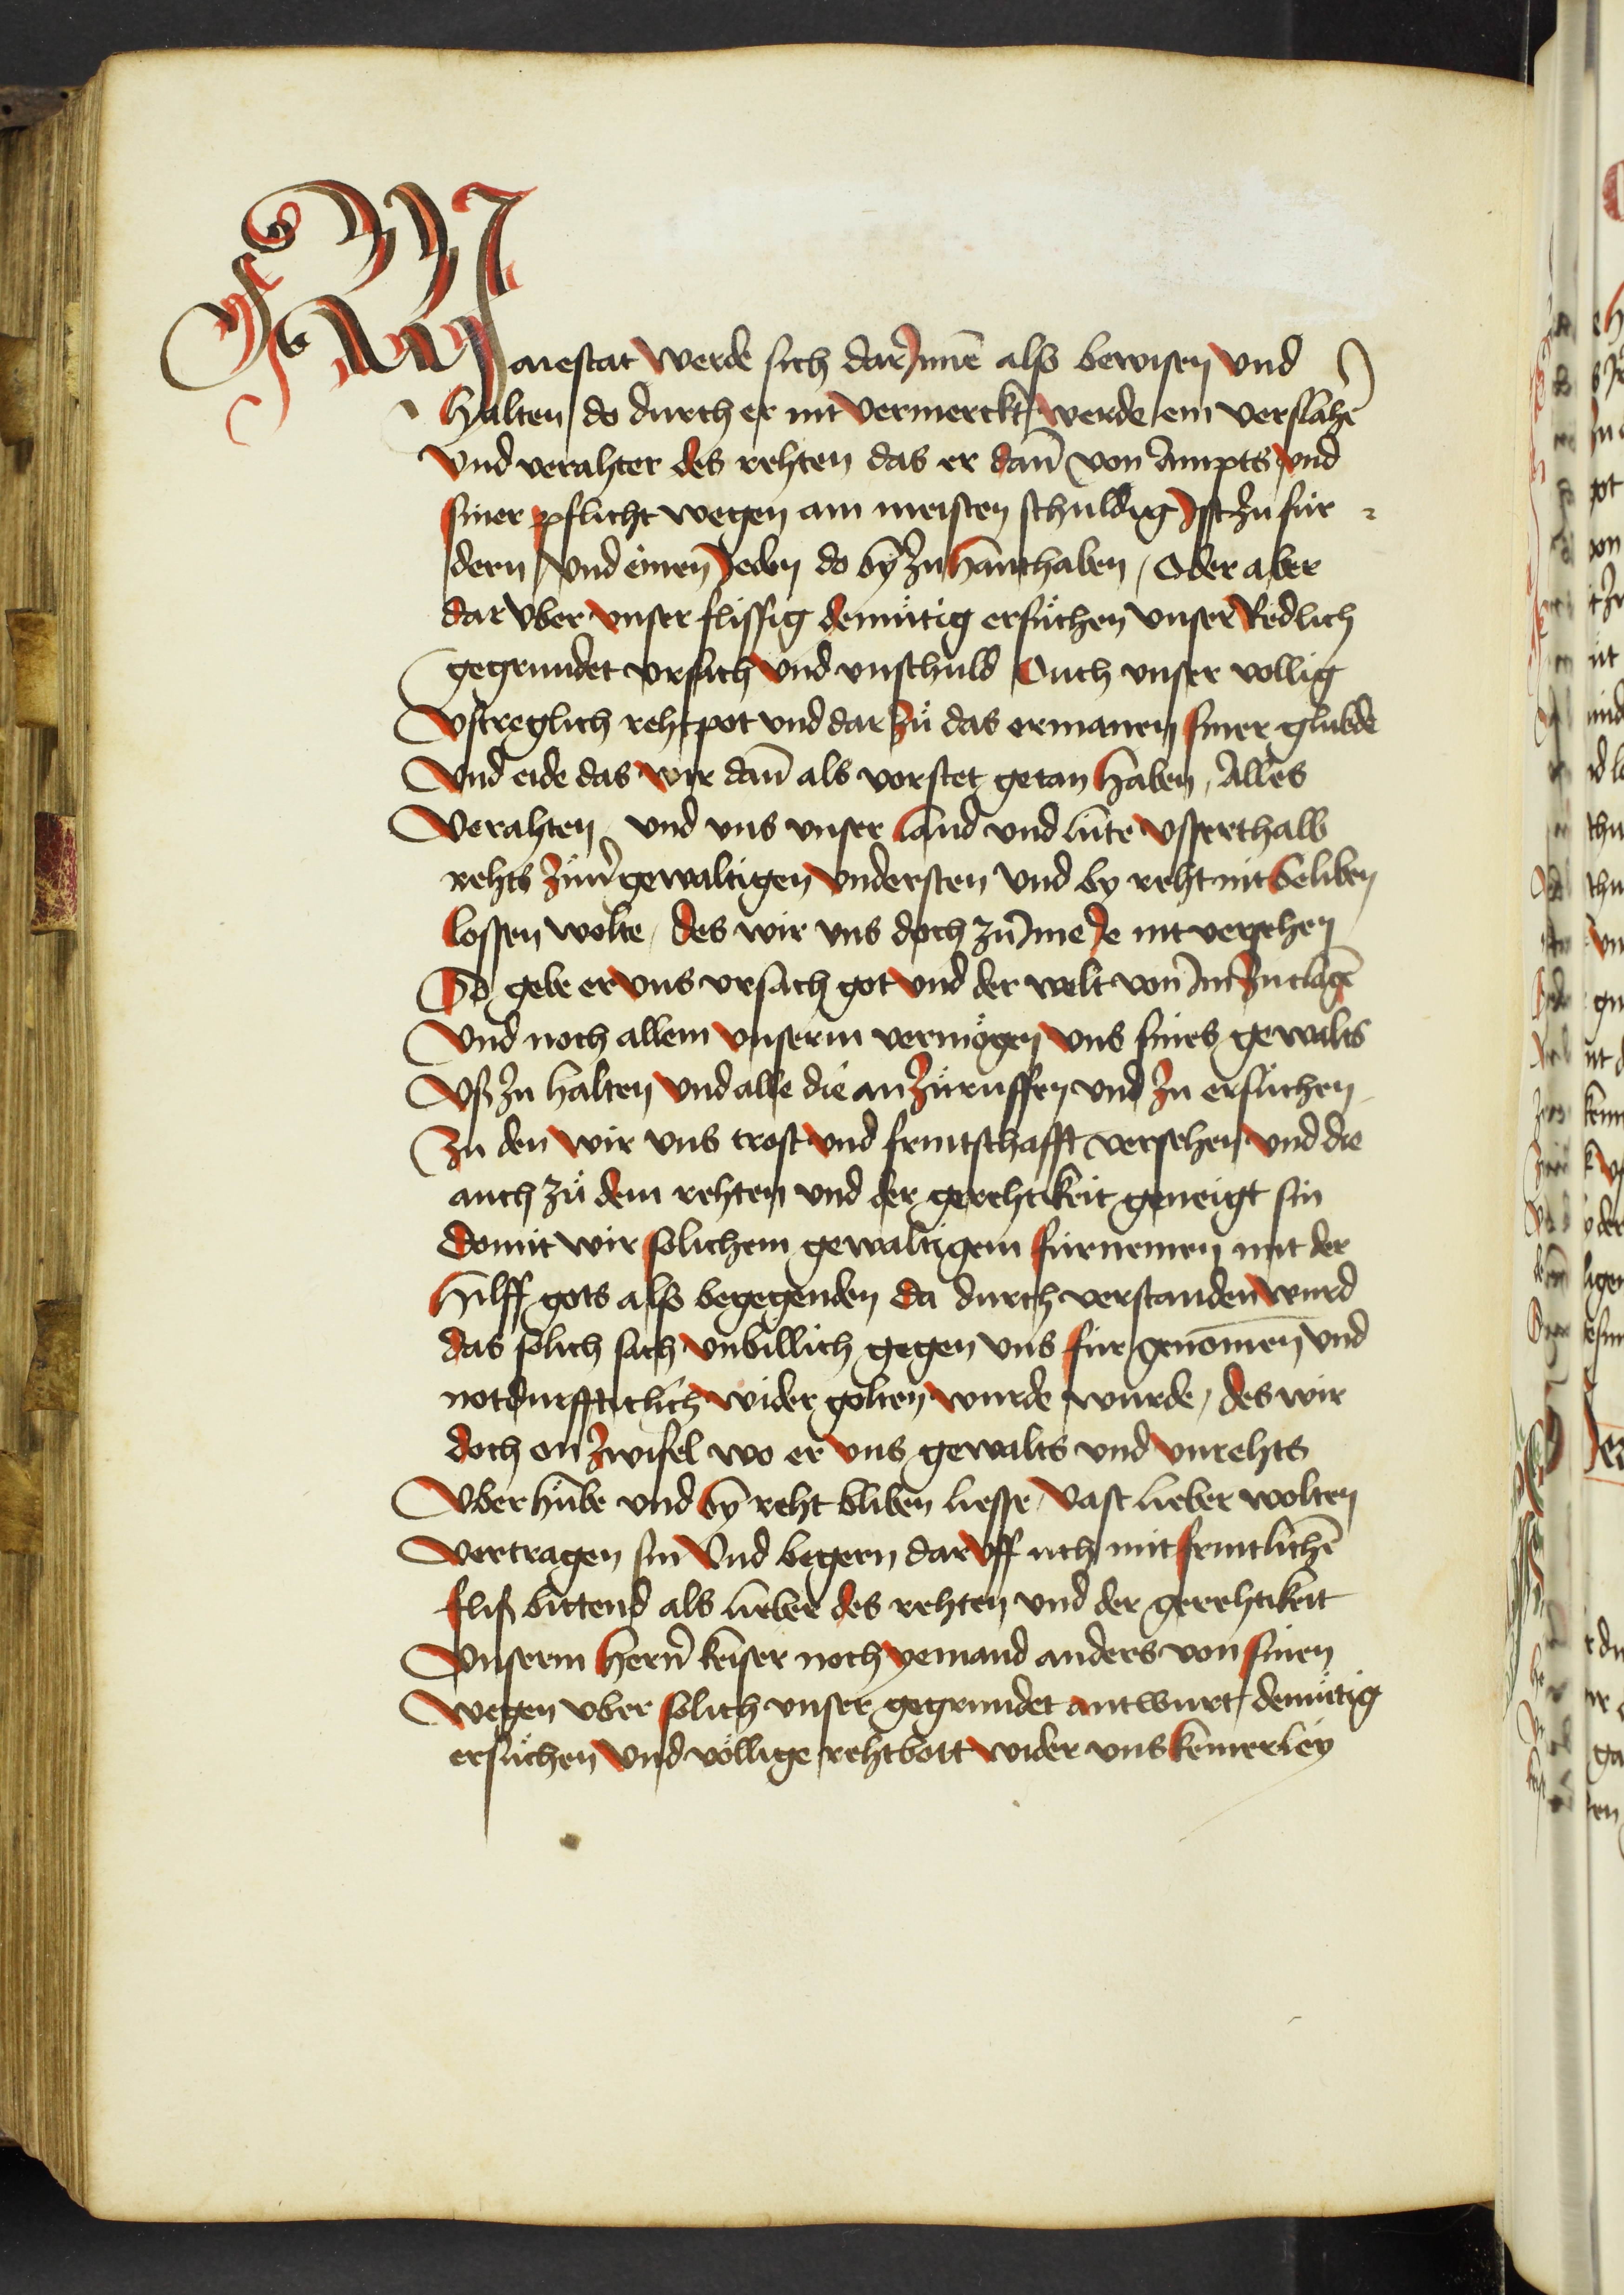 Maiestat werde sich dar Jnnē also bewisen vnd
halten do durch er nit vermerckt werde ein versmahē
vnd verahter des rehten das er dañ von Ampts vnd
siner pflicht wegen am meisten schuldig Jst zu für
dern vnd einen Jeden do bÿ zu hanthaben / Oder aber
dar vber vnser flissig demütig ersůchen vnser Redlich
gegrundet vrsach vnd vnschuld Ouch vnser vollig
vstreglich rehtpot vnd dar zů das ermanen siner glubde
vnd eide das wir dañ als vorstet getan haben / Alles
verahten vnd vns vnser land vnd lüte vsserthalb
rehts zům̄ gewaltigen vndersten vnd by reht nit beliben
lossen wolte / des wir vns doch zů Jme Je nit versehen
So gebe er vns vrsach got vnd der welt von Jm zu clagē
vnd noch allem vnserm vermögen vns sines gewalts
vß zu halten vnd alle die an zůruffen vnd zu ersůchen
zu den wir vns trost vnd fruntschafft versehen vnd die
auch zů dem rehten vnd der gerehtikeit geneigt sin
domit wir solichem gewaltigem fürnemen mit der
hilff gots also begegenden da durch verstanden wurd
das solich sach vnbillich gegen vns für genomen vnd
notdurffticlich wider golten wurde wurde / des wir
doch on zwifel wo er vns gewalts vnd vnrehts
vber hübe vnd bÿ reht bliben liesse / vast lieber wolten
vertragen sin vnd begern dar vff uch mit fruntlichē
fliß bittend als lieber des rehten vnd der gerehtikeit
vnserm herñ keiser noch yemand anders von sinen
wegen vber solich vnser gegrundet antwurt demütig
ersůchen vnd völlige rehtbott wider vns keinerley